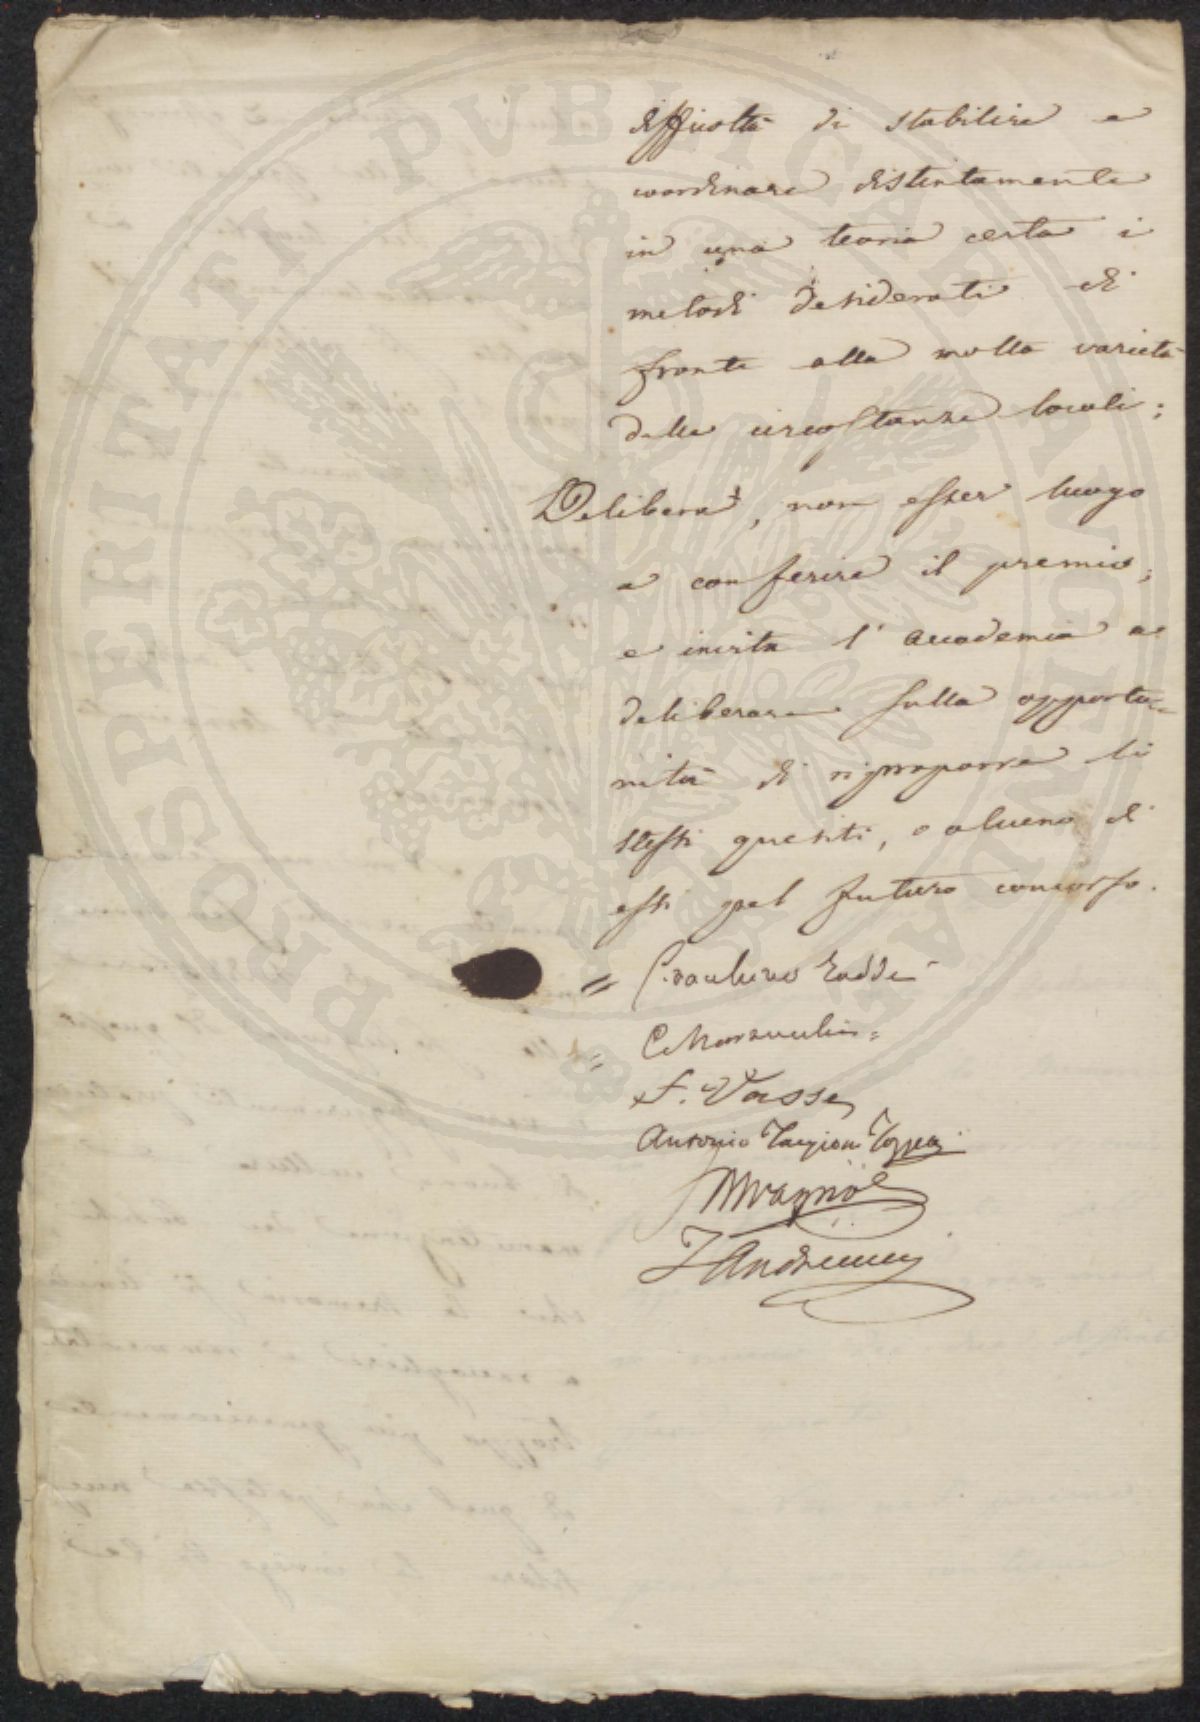 difficoltà di stabilire e
coordinare distintamente
in una teoria certa i
metodi desiderati di
fronte alla molta varietà
delle circostanze locali;
Delibera, non esser luogo
a conferire il premio;
e invita l'Accademia a
deliberare sulla opportu=
nità di riproporre li
stessi quesiti, o alcuno di
essi pel futuro concorso.
= Taddei
=
F.
Antonio Targioni Tozzetti
PROSPERITATI PVBLICAE AVGENDAE